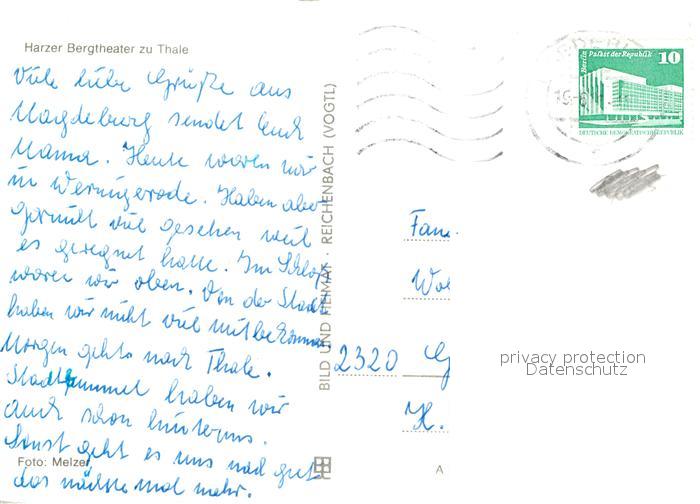 Harzer Bergtheater zu Thale
Viele liebe Grüße aus
Magdeburg sendet Euch
Mama. Heute waren wir
in Wernigerode. Haben aber
viel gesehen weil
es geregnet hatte. Im Schloß
waren wir oben. Von der Stadt
haben wir nicht viel mitbekommen.
Morgen gehts nach Thale.
Stadtbummel haben wir
auch schon hinter uns.
Sonst geht es uns noch gut
das nächste mal mehr.
Foto: Melzer
BILD UND HEIMAT · REICHENBACH (VOGTL)
Berlin Palast der Republik
10
DEUTSCHE DEMOKRATISCHE REPUBLIK
Fam.
2320 G
H.
A
privacy protection
Datenschutz